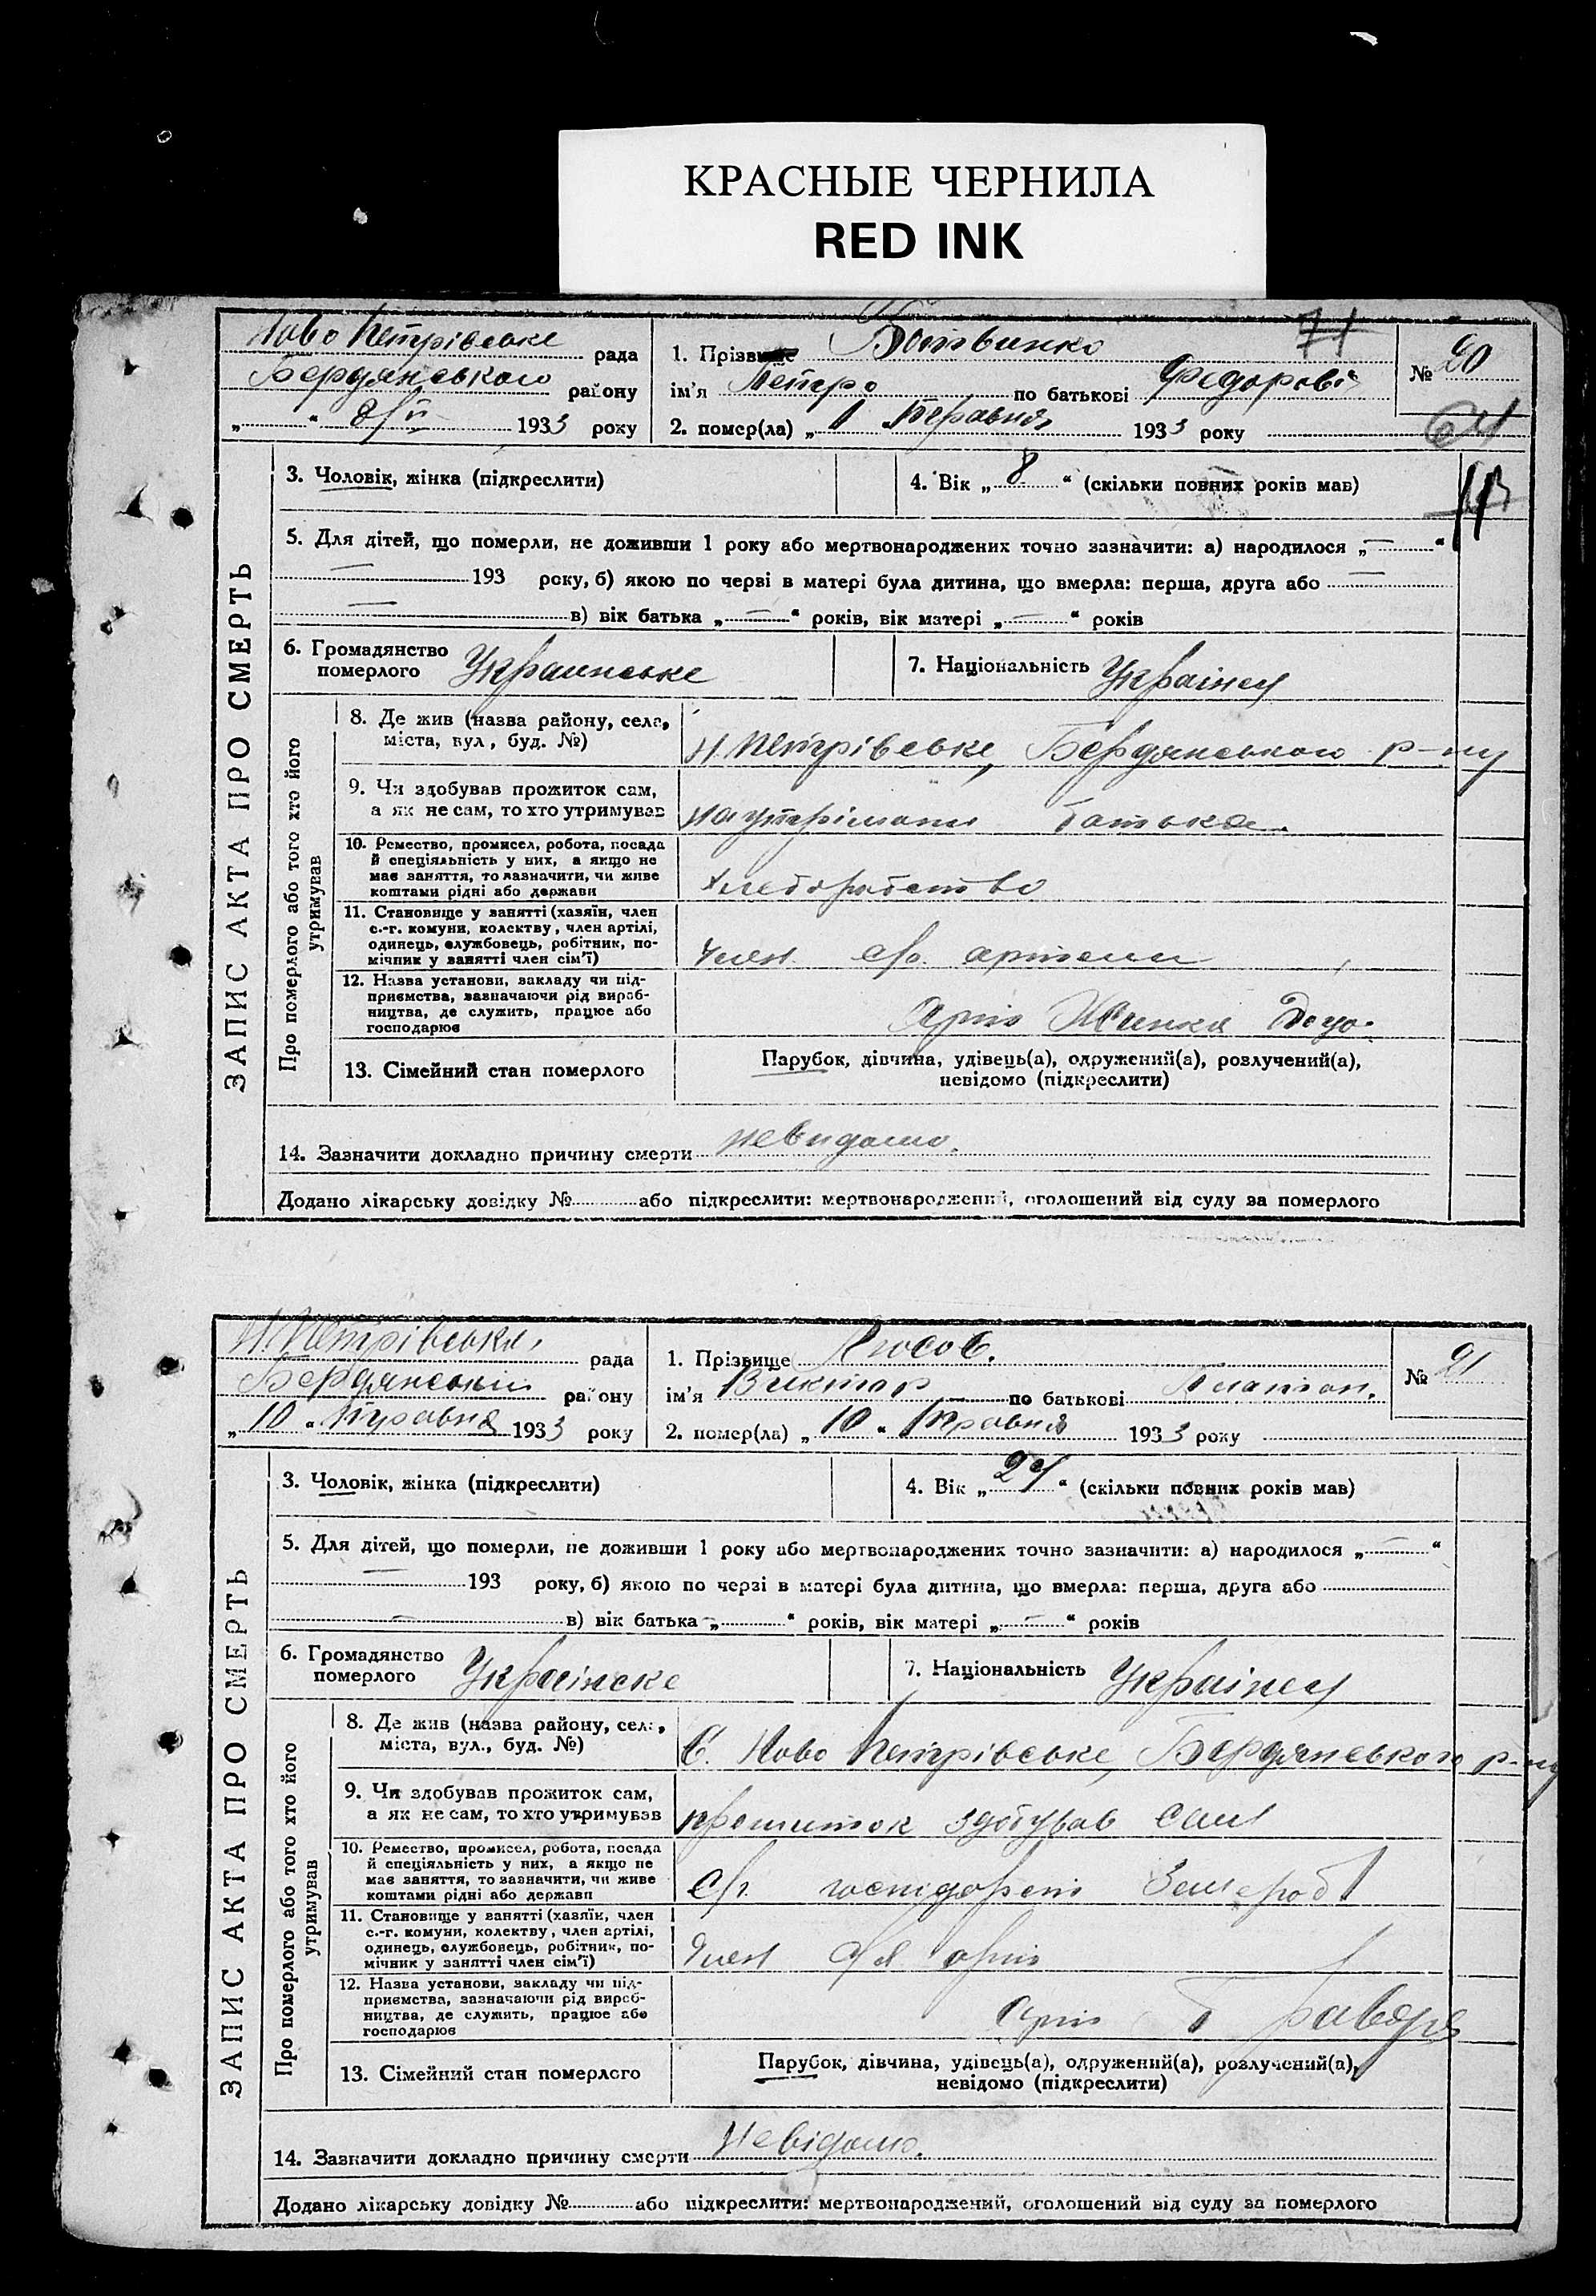 КРАСНЫЕ ЧЕРНИЛА
RED INK
Ново Петрівське рада
Бердянського району
" 8/V 1933 року
1. Прізвище Ботвинко
ім'я Петро по батькові Федорові
2. помер(ла) „ 1 Травня 1933 року
71
№ 20
64
ЗАПИС АКТА ПРО СМЕРТЬ
3. Чоловік, жінка (підкреслити)
4. Вік „ 8 “ (скільки повних років мав)
5. Для дітей, що померли, не доживши 1 року або мертвонароджених точно зазначити: а) народилося „ — “
— 193 року, б) якою по черві в матері була дитина, що вмерла: перша, друга або —
— в) вік батька „ — “ років, вік матері „ — “ років
6. Громадянство
померлого Украинське
7. Національність Украінец
Про померлого або того хто його
утримував
8. Де жив (назва району, села,
міста, вул., буд. №) Н. Петрівське, Бердянського р-ну
9. Чи здобував прожиток сам,
а як не сам, то хто утримував на утрімани батька
10. Ремество, промисел, робота, посада
й спеціяльність у них, а якщо не
має заняття, то зазначити, чи живе
коштами рідні або держави Хлеборобство
11. Становище у занятті (хазяїн, член
с.-г. комуни, колектву, член артілі,
одинець, службовець, робітник, по-
мічник у занятті член сім'ї) член с/г. артели
12. Назва установи, закладу чи під-
приємства, зазначаючи рід вироб-
ництва, де служить, працює або
господарює Арт
13. Сімейний стан померлого
Парубок, дівчина, удівець(а), одружений(а), розлучений(а),
невідомо (підкреслити)
14. Зазначити докладно причину смерти невидомо.
Додано лікарську довідку № або підкреслити: мертвонароджений, оголошений від суду за померлого
Н. Петрівська рада
Бердянський району
„ 10 “ Травня 1933 року
1. Прізвище Лысов.
ім'я Виктор по батькові Платон.
2. помер(ла) „ 10 “ Травня 1933 року
№ 21
ЗАПИС АКТА ПРО СМЕРТЬ
3. Чоловік, жінка (підкреслити)
4. Вік „ 24 “ (скільки повних років мав)
5. Для дітей, що померли, не доживши 1 року або мертвонароджених точно зазначити: а) народилося „ — “
— 193 року, б) якою по черзі в матері була дитина, що вмерла: перша, друга або
— в) вік батька „ — “ років, вік матері „ — “ років
6. Громадянство
померлого Украінске
7. Національність Украінец
Про померлого або того хто його
утримував
8. Де жив (назва району, села,
міста, вул., буд. №) С. Ново Петрівське, Бердянського р-ну
9. Чи здобував прожиток сам,
а як не сам, то хто утримував прошиток здобував сам
10. Ремество, промисел, робота, посада
й спеціяльність у них, а якщо не
має заняття, то зазначити, чи живе
коштами рідні або держави С/г. господарст Землероб
11. Становище у занятті (хазяїн, член
с.-г. комуни, колектву, член артілі,
одинець, службовець, робітник, по-
мічник у занятті член сім'ї) Член с/г арт
12. Назва установи, закладу чи під-
приємства, зазначаючи рід вироб-
ництва, де служить, працює або
господарює Арт
13. Сімейний стан померлого
Парубок, дівчина, удівець(а), одружений(а), розлучений(а),
невідомо (підкреслити)
14. Зазначити докладно причину смерти Невідомо.
Додано лікарську довідку № або підкреслити: мертвонароджений, оголошений від суду за померлого